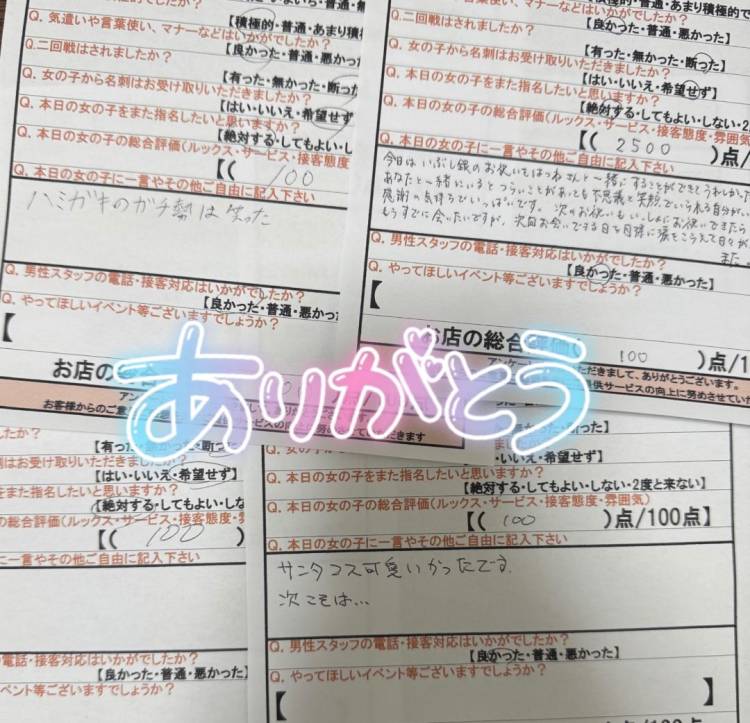 Q. 気遣いや言葉使い、マナーなどはいかがでしたか?
【積極的・普通・あまり積極
Q.二回戦はされましたか?
【良かった・普通・悪かっ
Q. 女の子から名刺はお受け取りいただきましたか?
【有った・無かった・断っ
Q. 本日の女の子をまた指名したいと思いますか?
【はい・いいえ・希望せず
Q. 本日の女の子の総合評価(ルックス・サービス・接客態度
【絶対する・してもよい・し
【( 100
Q. 本日の女の子に一言やその他ご自由に記入下さい
ハミガキのガチ勢は笑った
Q. 男性スタッフの電話・接客対応はいかがでしたか?
【良かった・普通・悪かっ
Q. やってほしいイベント等ございますでしょうか?
【
お店の
お客様からのご
マナーなどはいかがでしたか?
Q.二回戦はされましたか?
【良かった・普通・悪かった】
Q. 女の子から名刺はお受け取りいただきましたか?
【有った・無かった・断っ
Q. 本日の女の子をまた指名したいと思いますか?
【はい・いいえ・希望せず
Q. 本日の女の子の総合評価(ルックス・サービス・接客態度・雰囲気
【絶対する・してもよい・しない・2
【( 2500 )点/
Q. 本日の女の子に一言やその他ご自由に記入下さい
あなたと一緒にいるとつらいことがあっても不思議と笑顔でいられる自分がい
感謝の気持ちでいっぱいです。次のお祝いもいっしょにお祝いできたら
Q. 男性スタッフの電話・接客対応はいかがでしたか?
【良かった・普通・悪かっ
Q. やってほしいイベント等ございますでしょうか?
【
お店の総合評価
100 )点/1
ただきまして、ありがとうございます。
供サービスの向上に努めさせていた
ありがとう
たか?
【有った・
はお受け取りいただきましたか?
【はい・いいえ・希望せず】
をまた指名したいと思いますか?
【絶対する・してもよい・しな
の総合評価(ルックス・サービス・接客態度・
【( 100 )
に一言やその他ご自由に記入下さい
電話・接客対応はいかがでしたか?
【良かった・普通・悪かった】
ベント等ございますでしょうか?
・いいえ・希望せず】
Q. 本日の女の子をまた指名したいと思いますか?
【絶対する・してもよい・しない・2度と来ない】
Q. 本日の女の子の総合評価(ルックス・サービス・接客態度・雰囲気)
【( 100 )点/100点】
Q. 本日の女の子に一言やその他ご自由に記入下さい
サンタコス可愛いかったです。
次こそは...
Q. 男性スタッフの電話・接客対応はいかがでしたか?
【良かった・普通・悪かった】
Q. やってほしいイベント等ございますでしょうか?
【 】